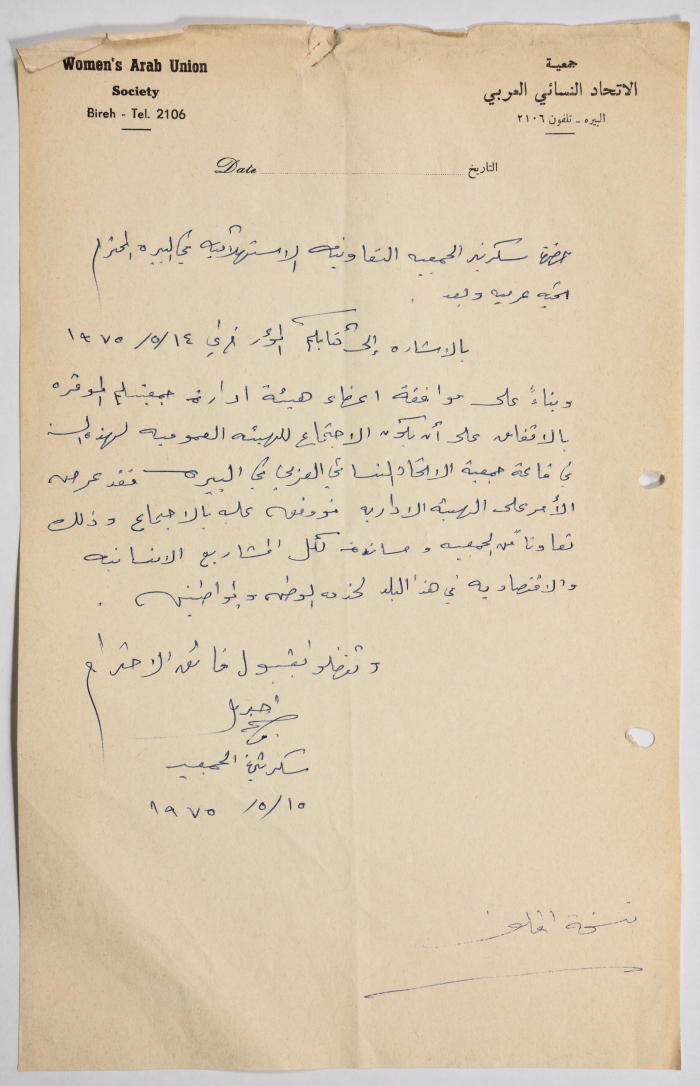 Women's Arab Union
Society
Bireh - Tel. 2106
جمعية
الاتحاد النسائي العربي
البيره - تلفون ٢١٠٦
Date
التاريخ
حضرة سكرتير الجمعيه التعاونيه الاستهلاكيه في البيره المحترم
تحيه عربيه وبعد .
بالاشاره إلى كتابكم المؤرخ في ١٤/٥/١٩٧٥
وبناءً على موافقة اعضاء هيئة ادارة جمعيتكم الموقره
بالاتفاق على أن يكون الاجتماع للهيئه العموميه لهذه السنه
في قاعة جمعية الاتحاد النسائي العربي في البيره فقد عرض
الأمر على الهيئة الاداريه فووفق عليه بالاجماع وذلك
تعاوناً من الجمعيه ومساندة لكل المشاريع الانسانيه
والاقتصاديه في هذا البلد لخدمة الوطن والمواطنين .
وتفضلوا بقبول فائق الاحترام
سكرتيرة الجمعيه
١٥/٥/١٩٧٥
نسخة